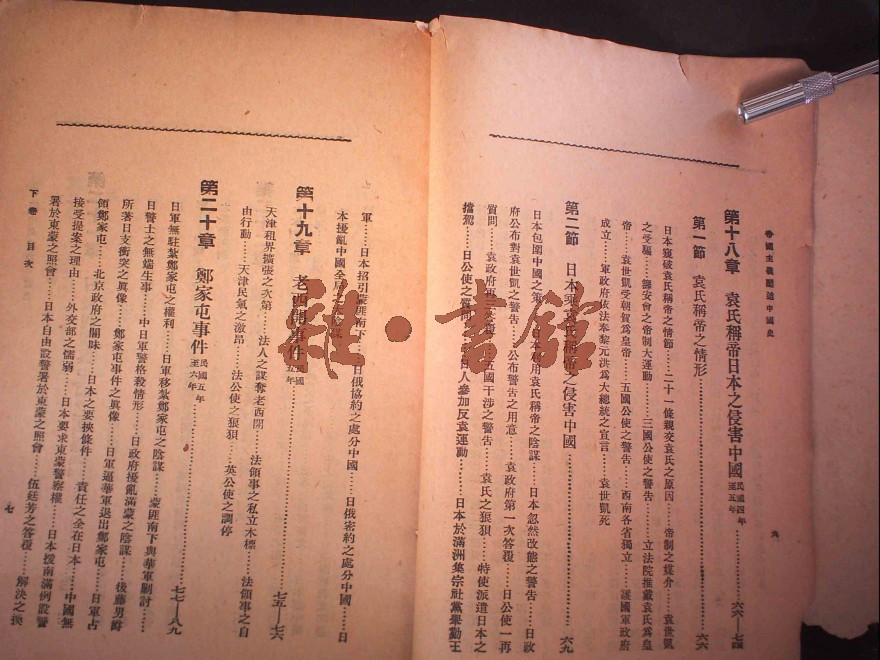 帝國主義壓迫中國史
六
第十八章 袁氏稱帝日本之侵害中國 民國四年至五年………六六—七四
第一節 袁氏稱帝之情形………六六
日本窺破袁氏稱帝之情節……二十一條親交袁氏之原因……帝制之媒介……袁世凱
之受騙……籌安會之帝制大運動……三國公使之警告……立法院推戴袁氏爲皇
帝……袁世凱受朝賀爲皇帝……五國公使之警告……西南各省獨立……護國軍政府
成立……軍政府依法奉黎元洪爲大總統之宣言……袁世凱死
第二節 日本乘袁氏稱帝之侵害中國………六九
日本包圍中國之策……日本利用袁氏稱帝之陰謀……日本忽然改態之警告……日政
府公布對袁世凱之警告……公布警告之用意……袁政府第一次答覆……日公使一再
質問……袁政府再三答覆……五國干涉之警告……袁氏之狼狽……特使派遣日本之
擋駕……日公使之質問……日人參加反袁運動……日本於滿洲集宗社黨舉勤王
軍……日本招引蒙匪南下……日俄協約之處分中國……日俄密約之處分中國……日
本擾亂中國全局之
第十九章 老西開事件 民國五年………七五—七六
天津租界擴張之次第……法人之謀奪老西開……法領事之私立木標……法領事之自
由行動……天津民氣之激昂……法公使之狼狽……英公使之調停
第二十章 鄭家屯事件 民國五年至六年………七七—八九
日軍無駐紮鄭家屯之權利……日軍移紮鄭家屯之陰謀……蒙匪南下與華軍剿討……
日警士之無端生事……中日軍警格殺情形……日政府擾亂滿蒙之陰謀……後藤男爵
所著日支衝突之眞像……鄭家屯事件之眞像……日軍逼華軍退出鄭家屯……日軍占
領鄭家屯……北京政府之闇昧……日本之要挾條件……責任之全在日本……中國無
接受提案之理由……外交部之懦弱……日本要求東蒙警察權……日本援南滿例設警
署於東蒙之照會……日本自由設警署於東蒙之照會……伍廷芳之答覆……解決之換
下卷 目次
七
雅·書館